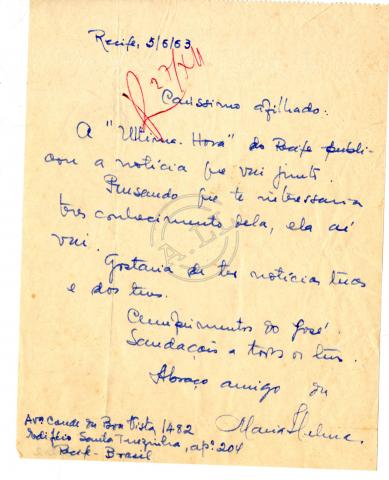 Recife, 5/6/63
27/XII
Caríssimo afilhado:
A "Ultima-Hora" do Recife publi-
cou a notícia que vai junta.
Pensando que te interessaria
teres conhecimento dela, ela aí
vai.
Gostaria de ter notícias tuas
e dos teus.
Cumprimentos do José.
Saudações a todos os teus.
Abraço amigo da
Maria Helena.
Ava Conde da Boa Vista, 1482
Edifício Santa Terezinha, apº 204
Recife - Brasil